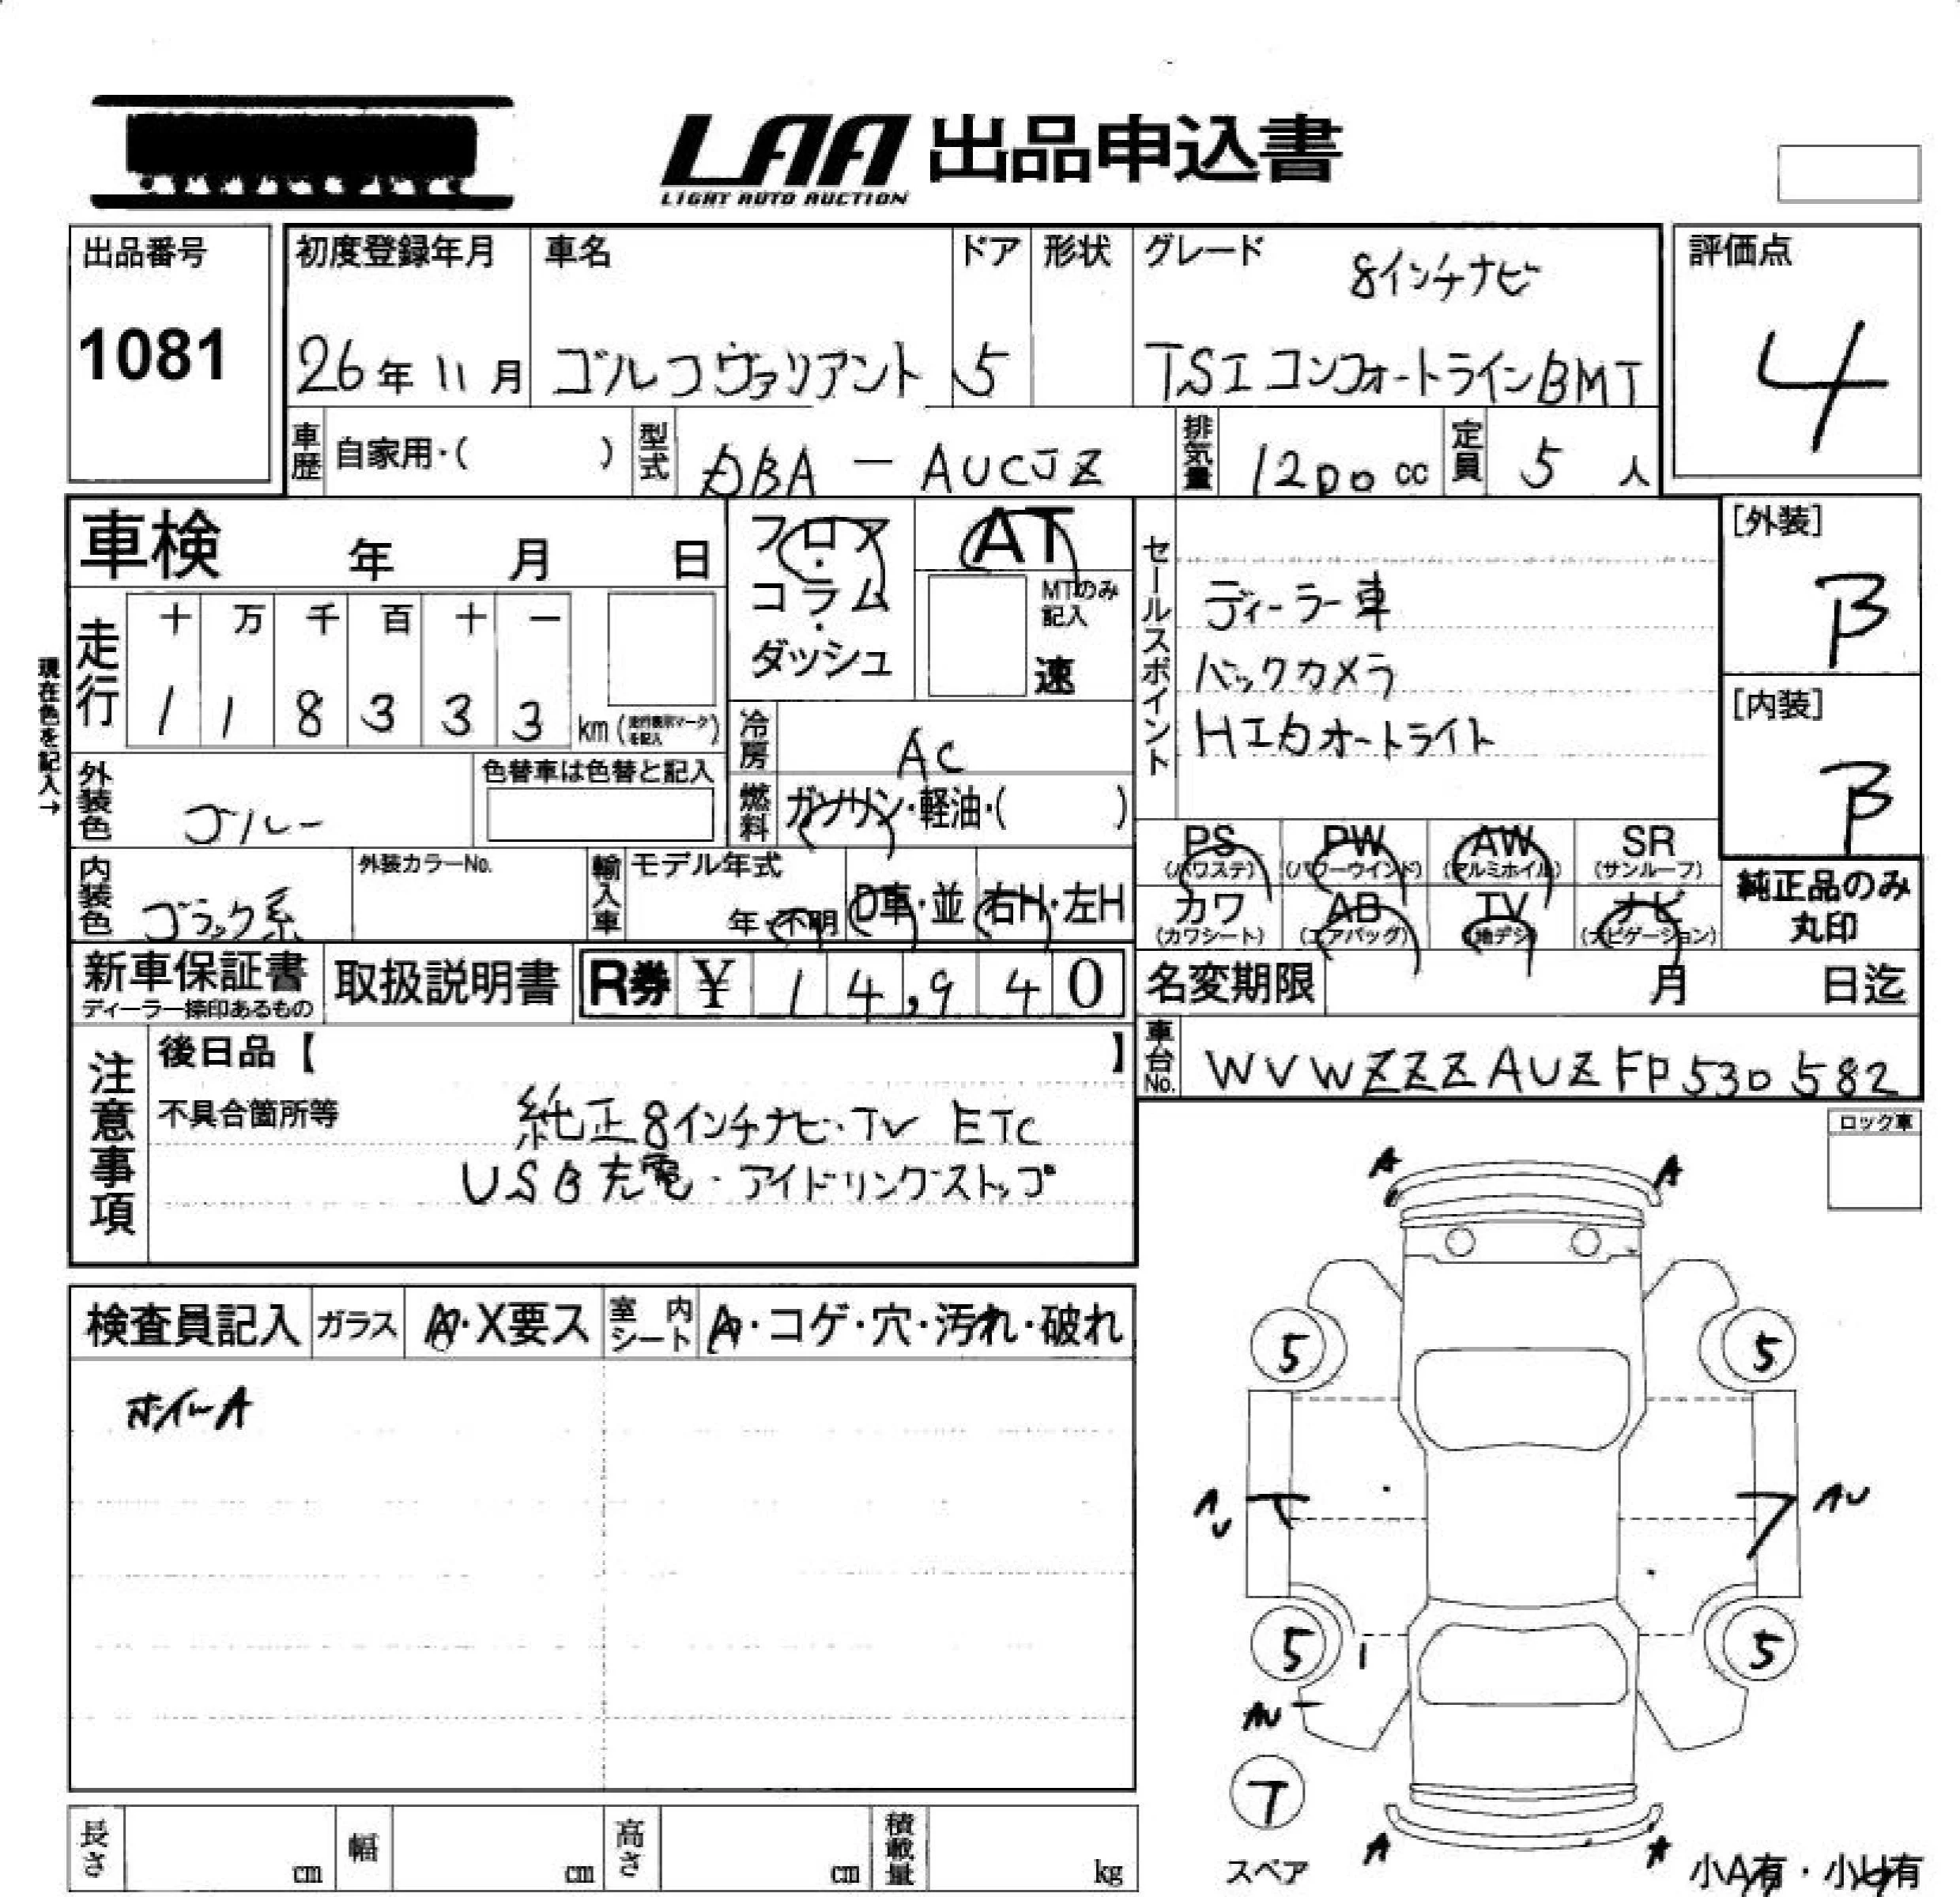 LAA 出品申込書
LIGHT AUTO AUCTION
出品番号
1081
初度登録年月
26年11月
車名
ゴルフヴァリアント
ドア
5
形状
グレード
8インチナビ
TSI コンフォートラインBMT
評価点
4
車歴
自家用・( )
型式
DBA - AUCJZ
排気量
1200 cc
定員
5 人
車検 年 月 日
フロア・コラム・ダッシュ
AT
MTのみ記入
速
セールスポイント
ディーラー車
バックカメラ
HIDオートライト
[外装]
B
[内装]
B
現在色を記入→
走行
十 万 千 百 十 一
1 1 8 3 3 3 km (走行表示マークを記入)
冷房
AC
燃料
ガソリン・軽油・( )
外装色
ブルー
色替車は色替と記入
内装色
ブラック系
外装カラーNo.
輸入車
モデル年式
年・不明
D車・並
右H・左H
PS (パワステ)
PW (パワーウインド)
AW (アルミホイル)
SR (サンルーフ)
カワ (カワシート)
AB (エアバッグ)
TV (地デジ)
ナビ (ナビゲーション)
純正品のみ丸印
新車保証書
ディーラー捺印あるもの
取扱説明書
R券 ¥ 14,940
名変期限 月 日迄
車台No.
WVWZZZAUZFP530582
注意事項
後日品【 】
不具合箇所等
純正8インチナビ・TV ETC
USB充電・アイドリングストップ
ロック車
検査員記入
ガラス
A・X要ス
室内シート
A・コゲ・穴・汚れ・破れ
ホイールA
A A
5 5
AU
5 5
AU
T
スペア
A A
小A有・小U有
長さ cm
幅 cm
高さ cm
積載量 kg